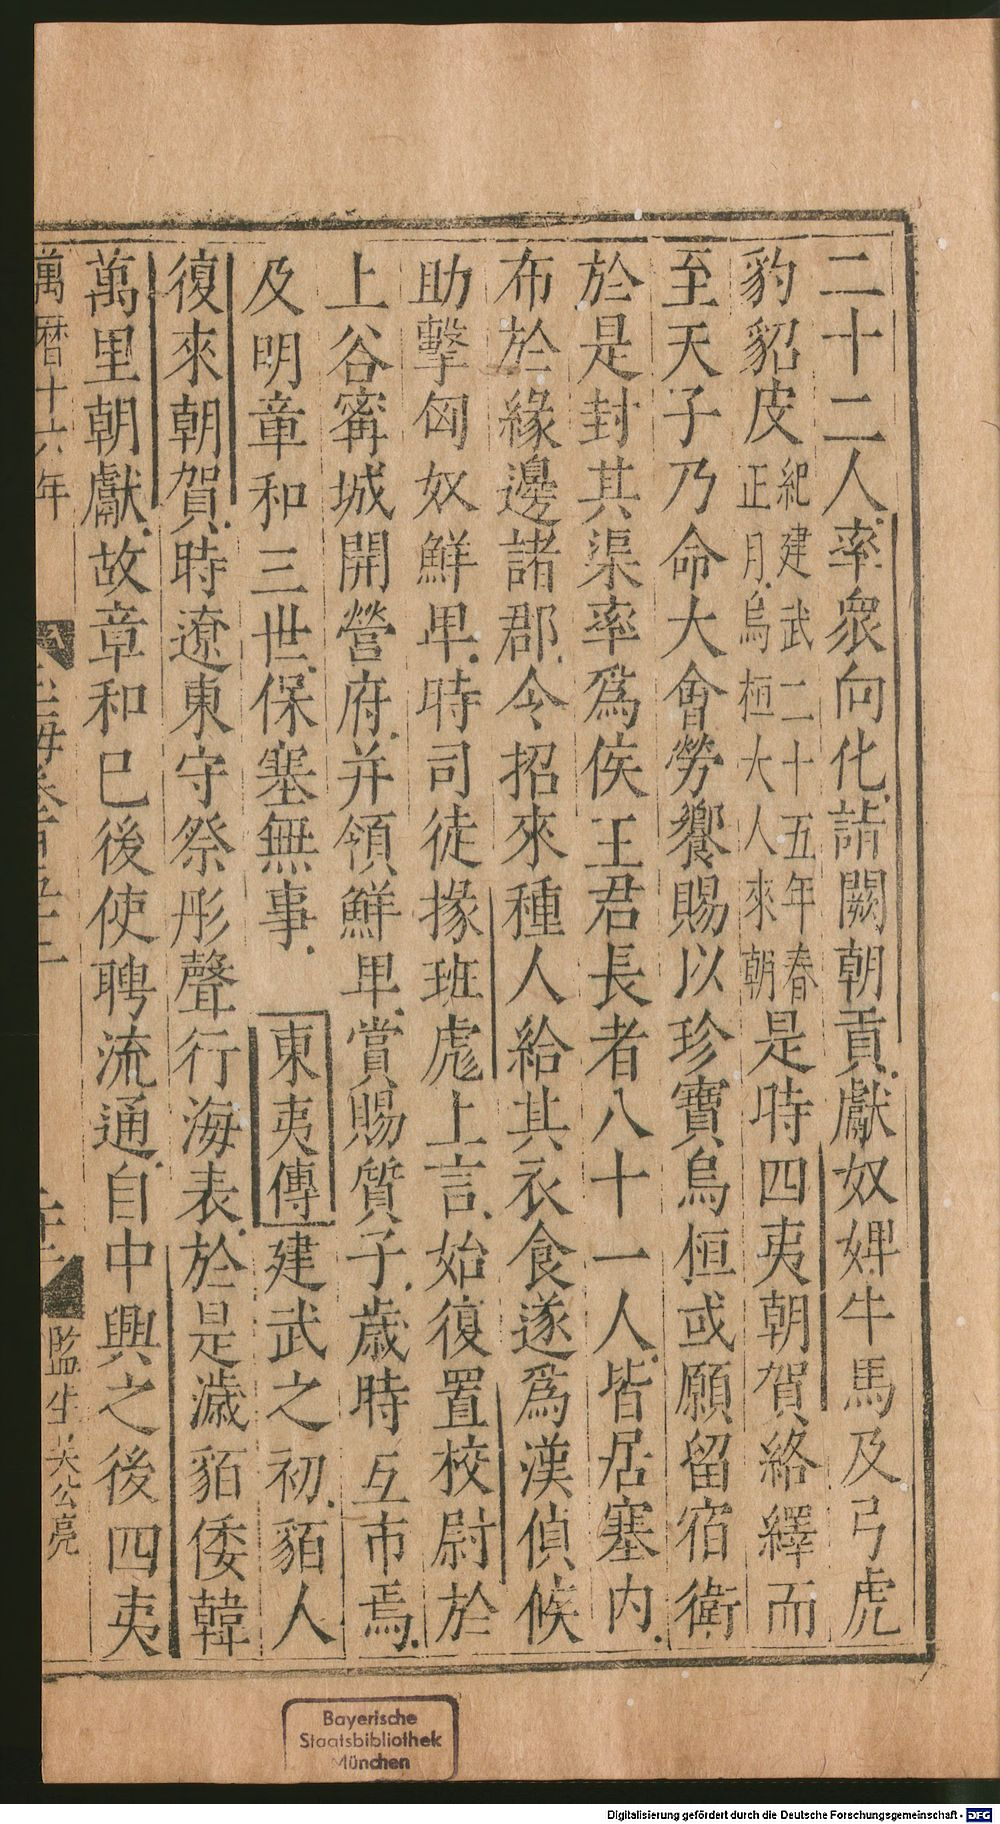 二十二人率衆向化詣闕朝貢獻奴婢牛馬及弓虎
豹貂皮紀建武二十五年春正月烏桓大人來朝是時四夷朝賀絡繹而
至天子乃命大會勞饗賜以珍寶烏桓或願留宿衛
於是封其渠率爲侯王君長者八十一人皆居塞内
布於緣邊諸郡令招來種人給其衣食遂爲漢偵候
助擊匈奴鮮卑時司徒掾班彪上言始復置校尉於
上谷甯城開營府并領鮮卑賞賜質子歲時互市焉
及明章和三世保塞無事東夷傳建武之初貊人
復來朝賀時遼東守祭彤聲行海表於是濊貊倭韓
萬里朝獻故章和已後使聘流通自中興之後四夷
萬曆十六年
玉海卷百五十二
監生吴公亮
Bayerische
Staatsbibliothek
München
Digitalisierung gefördert durch die Deutsche Forschungsgemeinschaft - DFG